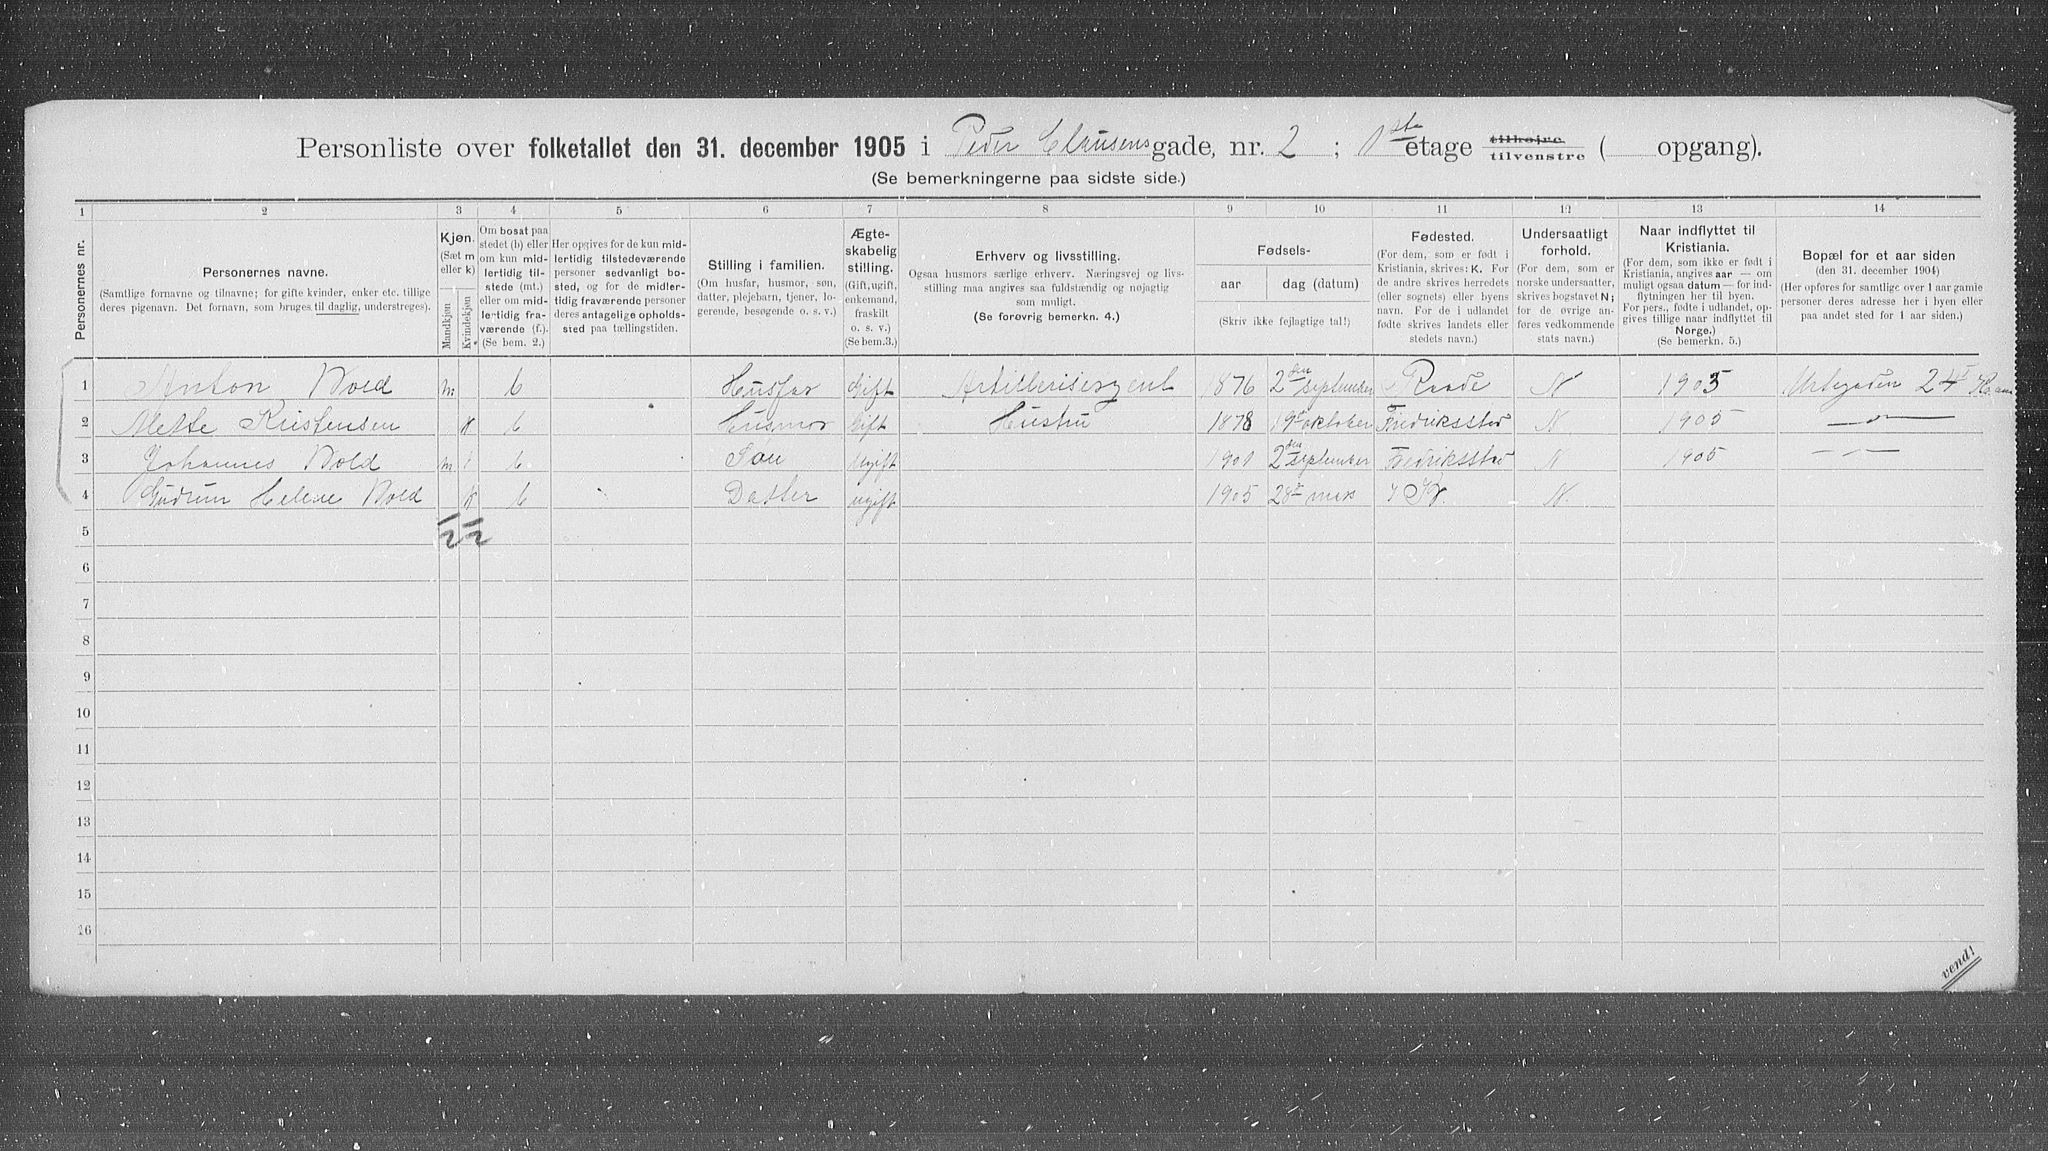 Personliste over folketallet den 31. december 1905 i Peder Clausens gade, nr. 2 ; 1ste etage tilhøire tilvenstre ( opgang).
(Se bemerkningerne paa sidste side.)
1 2 3 4 5 6 7 8 9 10 11 12 13 14
Personernes nr.
Personernes navne.
(Samtlige fornavne og tilnavne; for gifte kvinder, enker etc. tillige
deres pigenavn. Det fornavn, som bruges til daglig, understreges).
Kjøn.
(Sæt m
eller k)
Mandkjøn
Kvindekjøn
Om bosat paa
stedet (b) eller
om kun mid-
lertidig til-
stede (mt.)
eller om mid-
lertidig fra-
værende (f.).
(Se bem. 2.)
Her opgives for de kun mid-
lertidig tilstedeværende
personer sedvanligt bo-
sted, og for de midler-
tidig fraværende personer
deres antagelige opholds-
sted paa tællingstiden.
Stilling i familien.
(Om husfar, husmor, søn,
datter, plejebarn, tjener, lo-
gerende, besøgende o. s. v.)
Ægte-
skabelig
stilling.
(Gift, ugift,
enkemand,
fraskilt
o. s. v.)
(Se bem. 3.)
Erhverv og livsstilling.
Ogsaa husmors særlige erhverv. Næringsvej og livs-
stilling maa angives saa fuldstændig og nøjagtig
som muligt.
(Se forøvrig bemerkn. 4.)
Fødsels-
aar dag (datum)
(Skriv ikke fejlagtige tal!)
Fødested.
(For dem, som er født i
Kristiania, skrives: K. For
de andre skrives herredets
(eller sognets) eller byens
navn. For de i udlandet
fødte skrives landets eller
stedets navn.)
Undersaatligt
forhold.
(For dem, som er
norske undersaatter,
skrives bogstavet N;
for de øvrige an-
føres vedkommende
stats navn.)
Naar indflyttet til
Kristiania.
(For dem, som ikke er født i
Kristiania, angives aar — om
muligt ogsaa datum — for ind-
flytningen her til byen.
For pers., fødte i udlandet, op-
gives tillige naar indflyttet til
Norge.)
(Se bemerkn. 5.)
Bopæl for et aar siden
(den 31. december 1904)
(Her opføres for samtlige over 1 aar gamle
personer deres adresse her i byen eller
paa andet sted for 1 aar siden.)
1 Anton Wold m b Husfar Gift Artillerisergent 1876 2den september Raade N 1905 24
2 Mette Kristensen k b Husmor Gift Hustru 1878 19de oktober Fredriksstad N 1905 — " —
3 Johannes Wold m b Søn ugift 1901 2den september Fredriksstad N 1905 — " —
4 Gudrun Helene Wold k b Datter ugift 1905 28de mars K. N
5
6
7
8
9
10
11
12
13
14
15
16
vend!